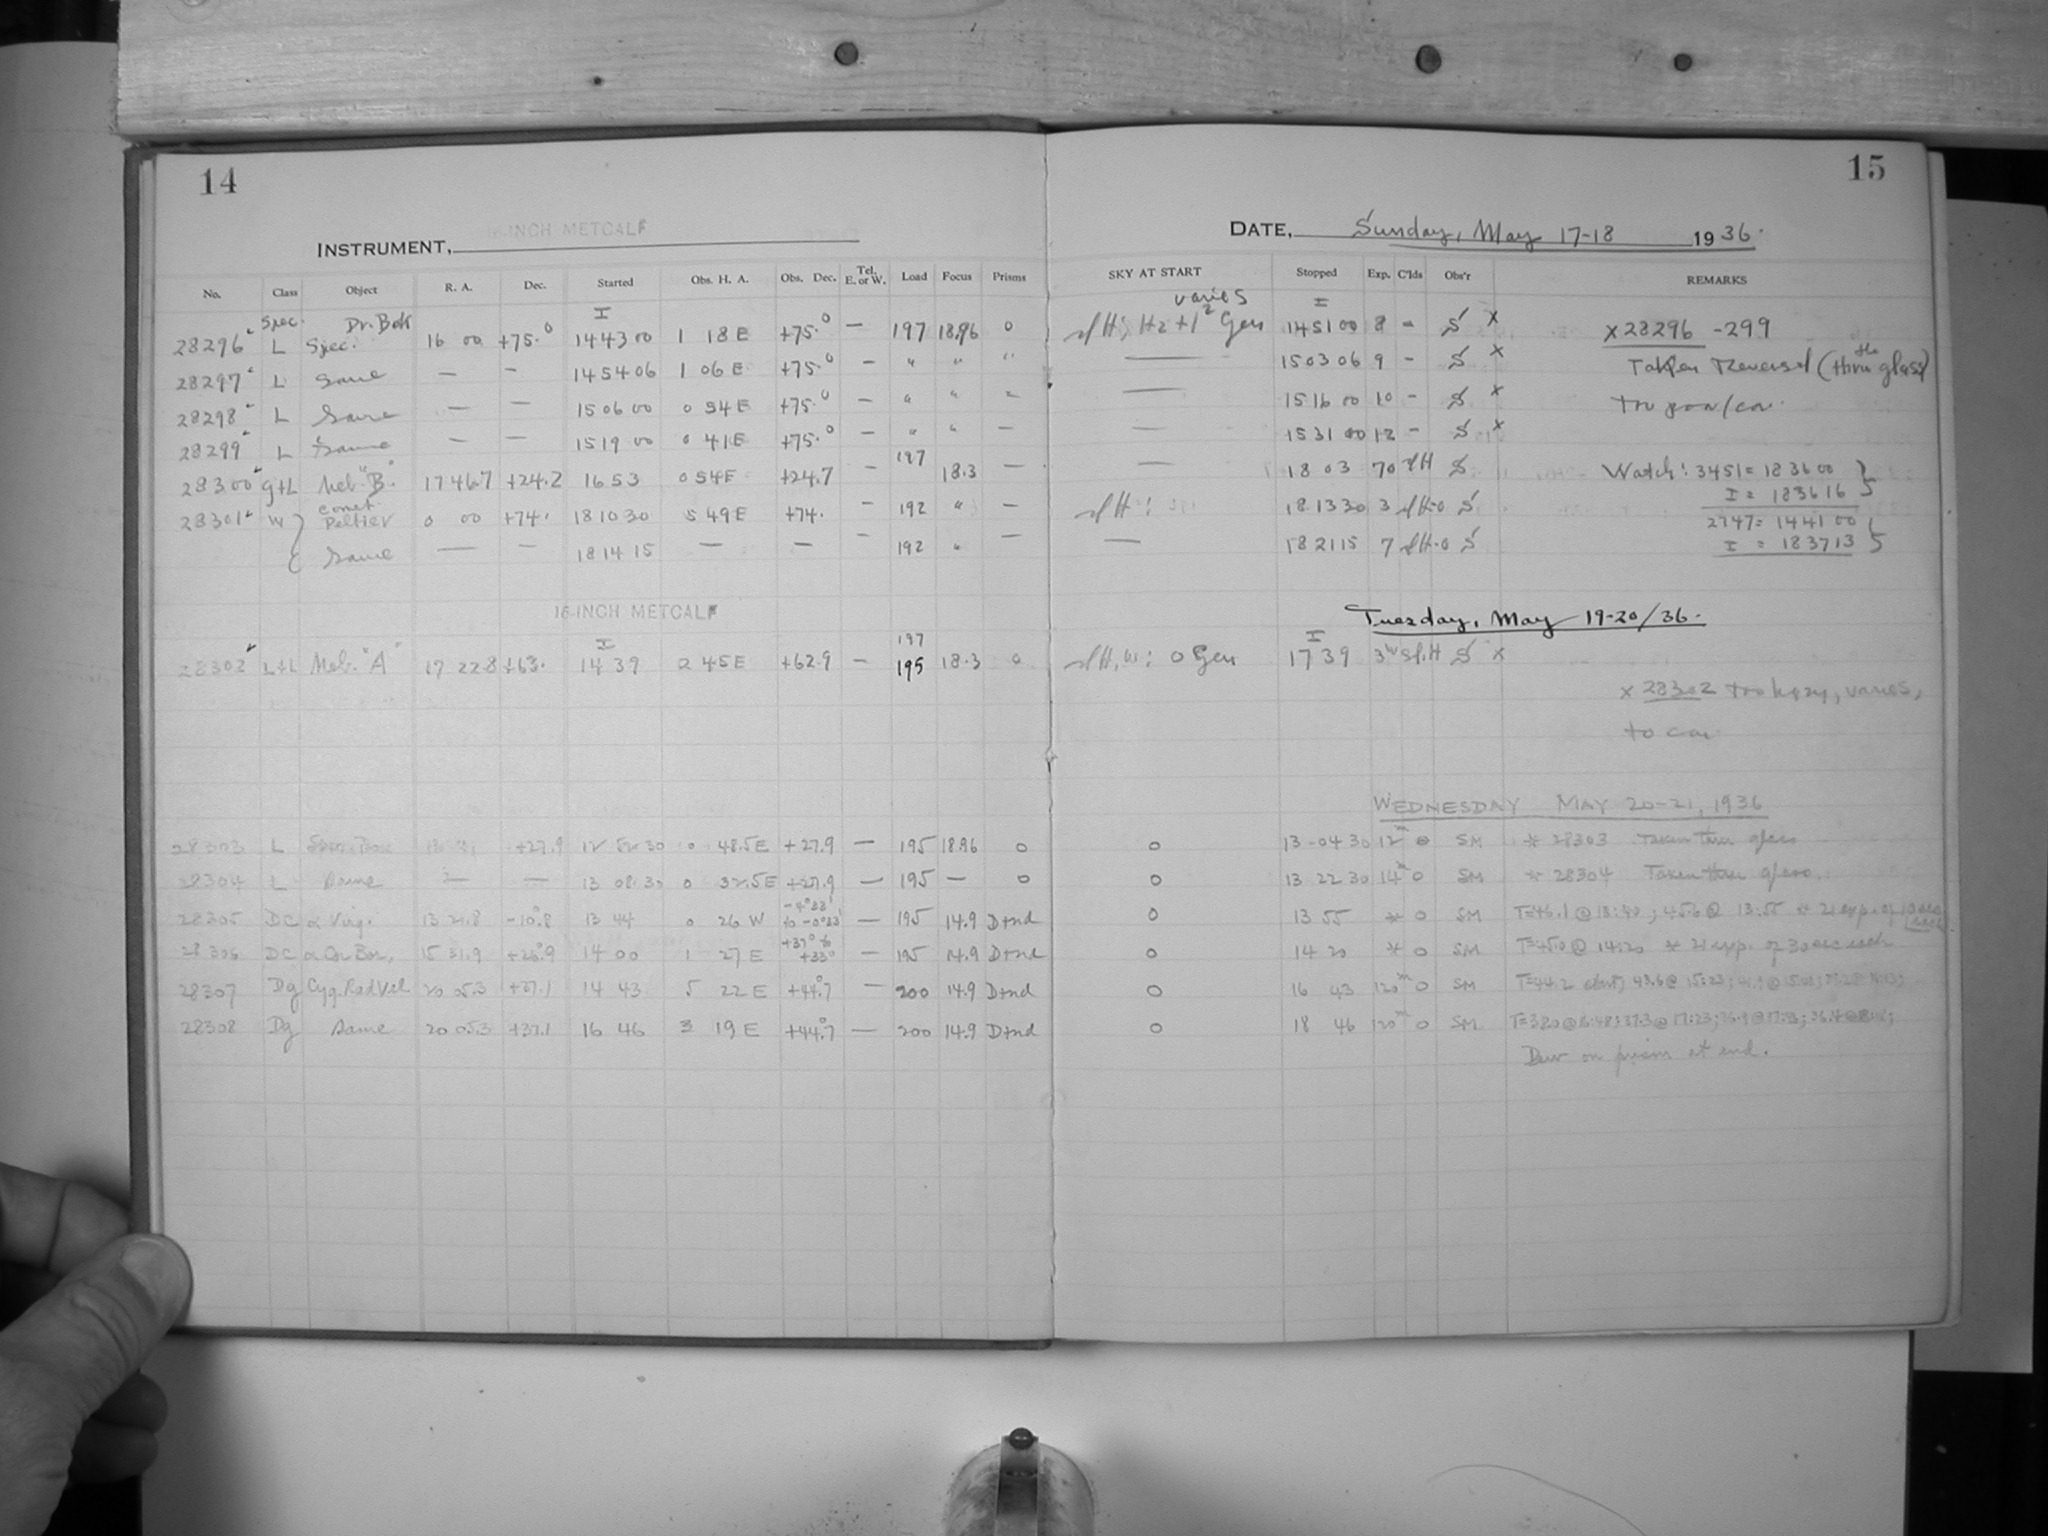 14
15
16-INCH METCALF
INSTRUMENT,
DATE, Sunday, May 17-18 1936.
No. Class Object R. A. Dec. Started Obs. H. A. Obs. Dec. Tel. E. or W. Load Focus Prisms SKY AT START Stopped Exp. C'lds Obs'r REMARKS
Spec. Dr. Bok I varies I
28296 L Spec. 16 00 +75.0 14 43 00 1 18 E +75.0 — 197 18.96 0 Gen 14 51 00 8 - S x x 28296 -299
28297 L Same — — 14 54 06 1 06 E +75.0 — " " " — 15 03 06 9 - S x Taken Reversed (thru the glass)
28298 L Same — — 15 06 00 0 54 E +75.0 — " " — 15 16 00 10 - S x
28299 L Same — — 15 19 00 0 41 E +75.0 — " " — — 15 31 00 12 - S x
197
28300 Neb. "B." 17 46.7 +24.2 16 53 0 54 E +24.7 — 18.3 — — 18 03 70 slH S Watch: 3451 = 18 36 00
I = 18 36 16
28301 W Comet Peltier 0 00 +74. 18 10 30 5 49 E +74. — 192 " — slH: 18 13 30 3 slH-0 S 2747 = 14 41 00
Same — — 18 14 15 — — — 192 " — — 18 21 15 7 slH-0 S I = 18 37 13
16-INCH METCALF
Tuesday, May 19-20/36.
I 197 I
28302 L+L Neb. "A" 17 22.8 +63. 14 39 2 45 E +62.9 — 195 18.3 0 0 Gen 17 39 S x
x 28302 too hazy, varies,
WEDNESDAY MAY 20-21, 1936
28303 L +27.9 12 52 30 0 48.5 E +27.9 — 195 18.96 0 0 13-04 30 12m 0 SM * 28303 Taken thru glass
28304 L Same — — 13 08 30 0 32.5 E +27.9 — 195 — 0 0 13 22 30 14m 0 SM * 28304 Taken thru glass.
28305 DC α Virg. 13 21.8 -10.8 13 44 0 26 W — 195 14.9 D+nd 0 13 55 * 0 SM T=46.1 @ 13:40; 45.6 @ 13:55 * 21 exp. of 10 sec each
28306 DC α Cor Bor, 15 31.9 +26.9 14 00 1 27 E +37° to +33° — 195 14.9 D+nd 0 14 20 * 0 SM T=45.0 @ 14:20 * 21 exp. of 30 sec each
28307 Dg Cyg. Rad Vel 20 05.3 +37.1 14 43 5 22 E +44.7 — 200 14.9 D+nd 0 16 43 120m 0 SM T=44.2 start; 43.6 @ 15:23;
28308 Dg Same 20 05.3 +37.1 16 46 3 19 E +44.7 — 200 14.9 D+nd 0 18 46 120m 0 SM
Dew on prism at end.